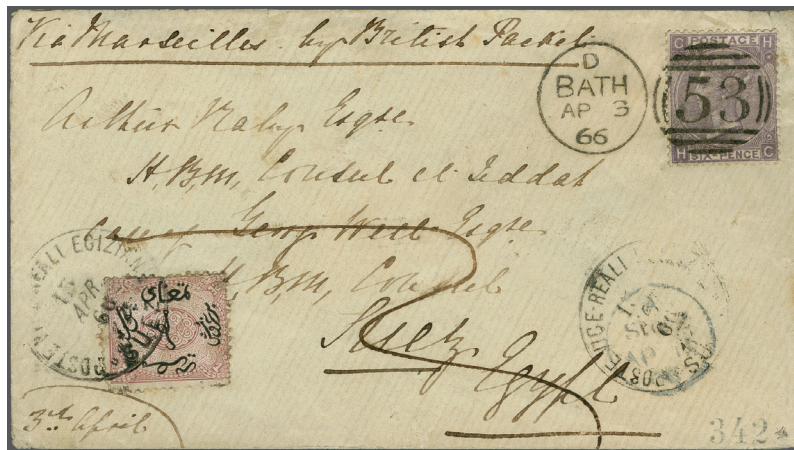 Via Marseilles by British Packet
D
BATH
AP 3
66
C POSTAGE H
53
H SIX-PENCE C
Arthur Raby Esqre
H.B.M. Consul at Jeddah
care of George West Esqre
H.B.M. Consul
Suez
Egypt
POSTE REALI EGIZIANE
15
APR
66
POSTE REALI
SUEZ
3rd April
342